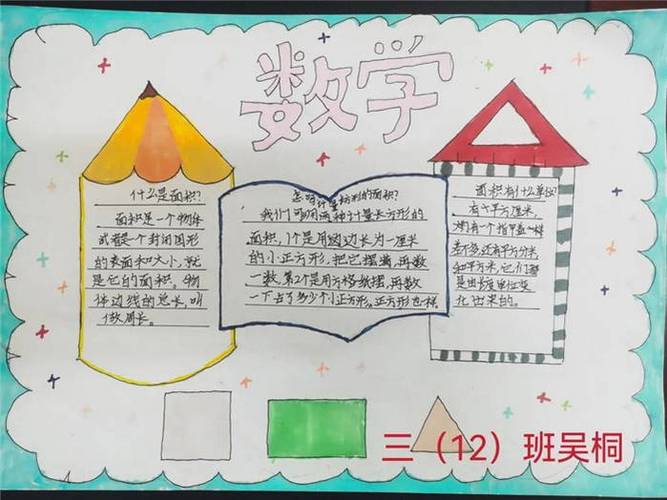 数学
什么是面积?
面积是一个物体
或者是一个封闭图形
的表面和大小,就
是它的面积。物
体边线的总长,叫
做周长。
怎样计量物形的面积?
我们可用两种计量长方形的
面积,1个是用边边长为一厘米
的小正方形,把它摆满,再数
一数。第2个是用方格纸摆,再数
一下占了多少个小正方形。正方形也一样。
面积有什么单位?
有平方厘米,
大约有一个指甲盖一样
差不多,还有平方分米
和平方米,它们都
是由长度单位变
化出来的。
三(12)班吴桐